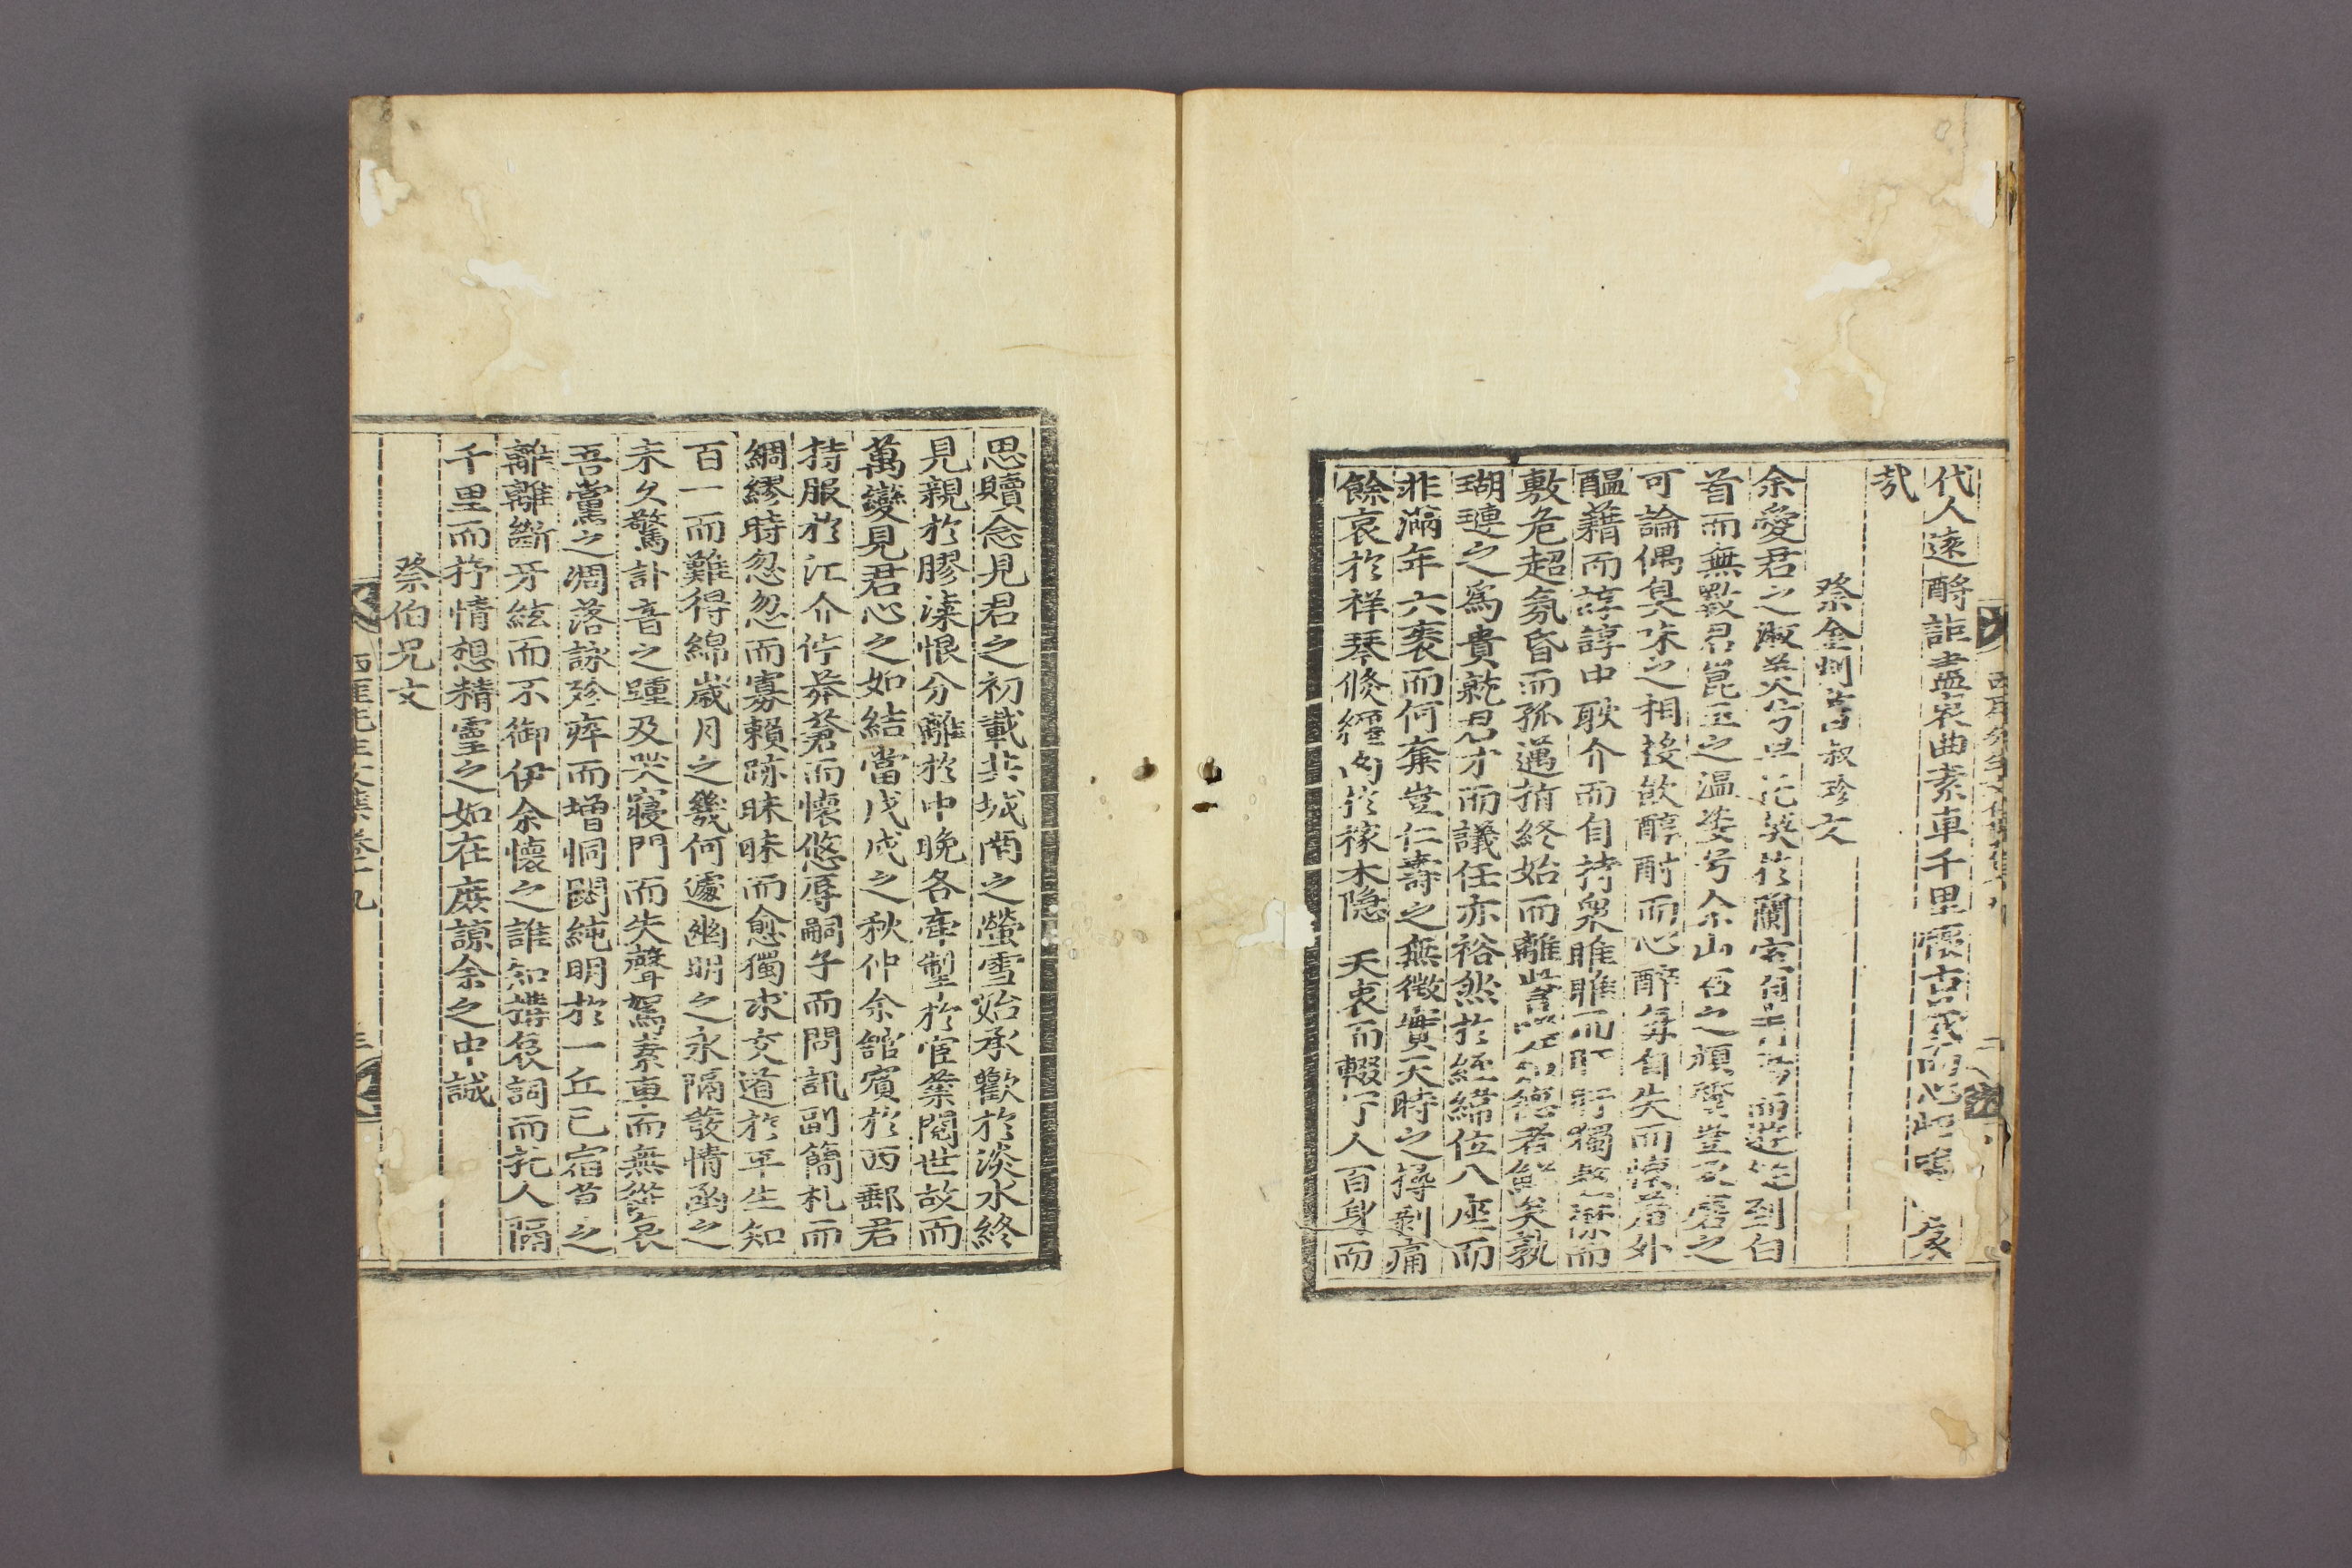 代人遠酹詎盡哀曲素車千里懷古
哉
祭金判書叔珍文
余愛君之淑英兮
首而無斁君崑玉之溫姿兮余山石之頑
可論偶臭味之相投飮醇酎而心醉每自失而
醞藉而諄諄中耿介而自持衆雎雎而盱盱獨
敷危超氛昏而孤邁捎終始而離 德者鮮矣孰
瑚璉之爲貴就君才而議任亦裕然於經緯位八座而
非滿年六袠而何夭豈仁壽之無徵實天時之搀剝痛
餘哀於祥琴倐纒 於稼木隐 天衷而輟 人百身而
思贖念見君之初載共城南之螢雪殆承歡於淡水終
見親於膠漆恨分離於中晩各牽掣於宦業閱世故而
萬變見君心之如結當戊戌之秋仲余舘賓於西郵君
持服於江介佇莽蒼而懷悠辱嗣子而問訊副簡札而
綢繆時忽忽而寡賴跡昧昧而愈獨求交道於平生知
百一而難得綿歲月之幾何遽幽明之永隔發情函之
未久驚訃音之踵及哭寢門而失聲駕素車而無從哀
吾黨之凋落詠殄瘁而增恫閟純明於一丘已宿昔之
離離斷牙絃而不御伊余懷之誰知搆哀詞而托人隔
千里而抒情想精靈之如在庶諒余之中誠
祭伯兄文
西厓先生文集卷十九 三